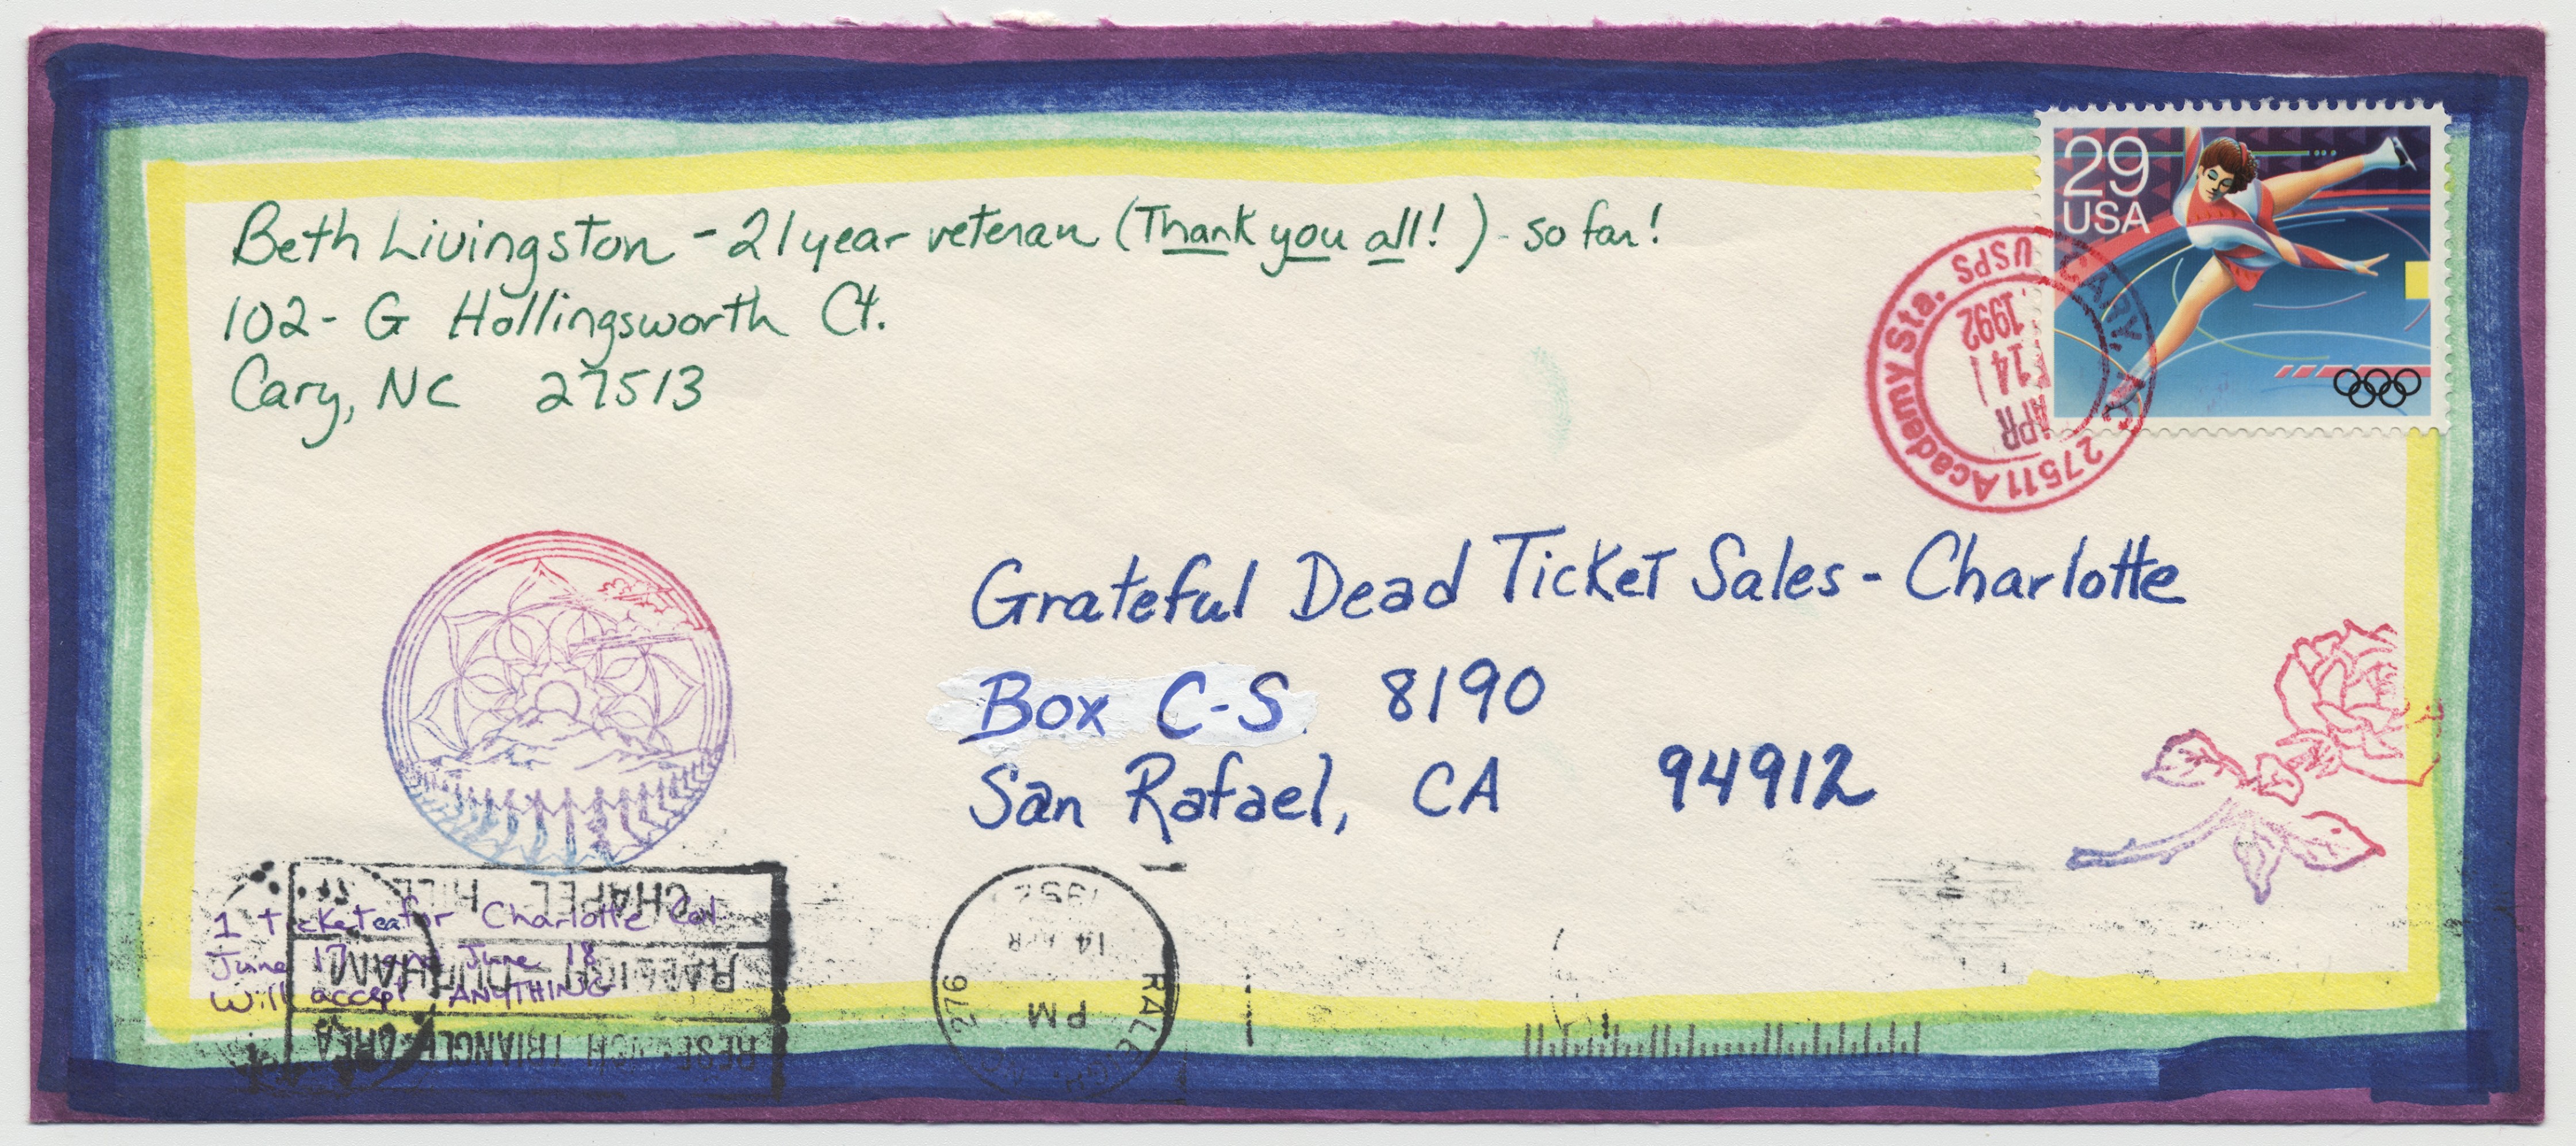 Beth Livingston - 21 year veteran (Thank you all!) - so far!
102-G Hollingsworth Ct.
Cary, NC 27513
29
USA
CARY, NC
27511 Academy Sta. USPS
APR
14
1992
Grateful Dead Ticket Sales - Charlotte
Box C-S 8190
San Rafael, CA 94912
1 ticket ea for Charlotte Col
June 17 and June 18
Will accept ANYTHING
RESEARCH TRIANGLE AREA
RALEIGH DURHAM
CHAPEL HILL
RALEIGH
276
PM
14 APR
1992